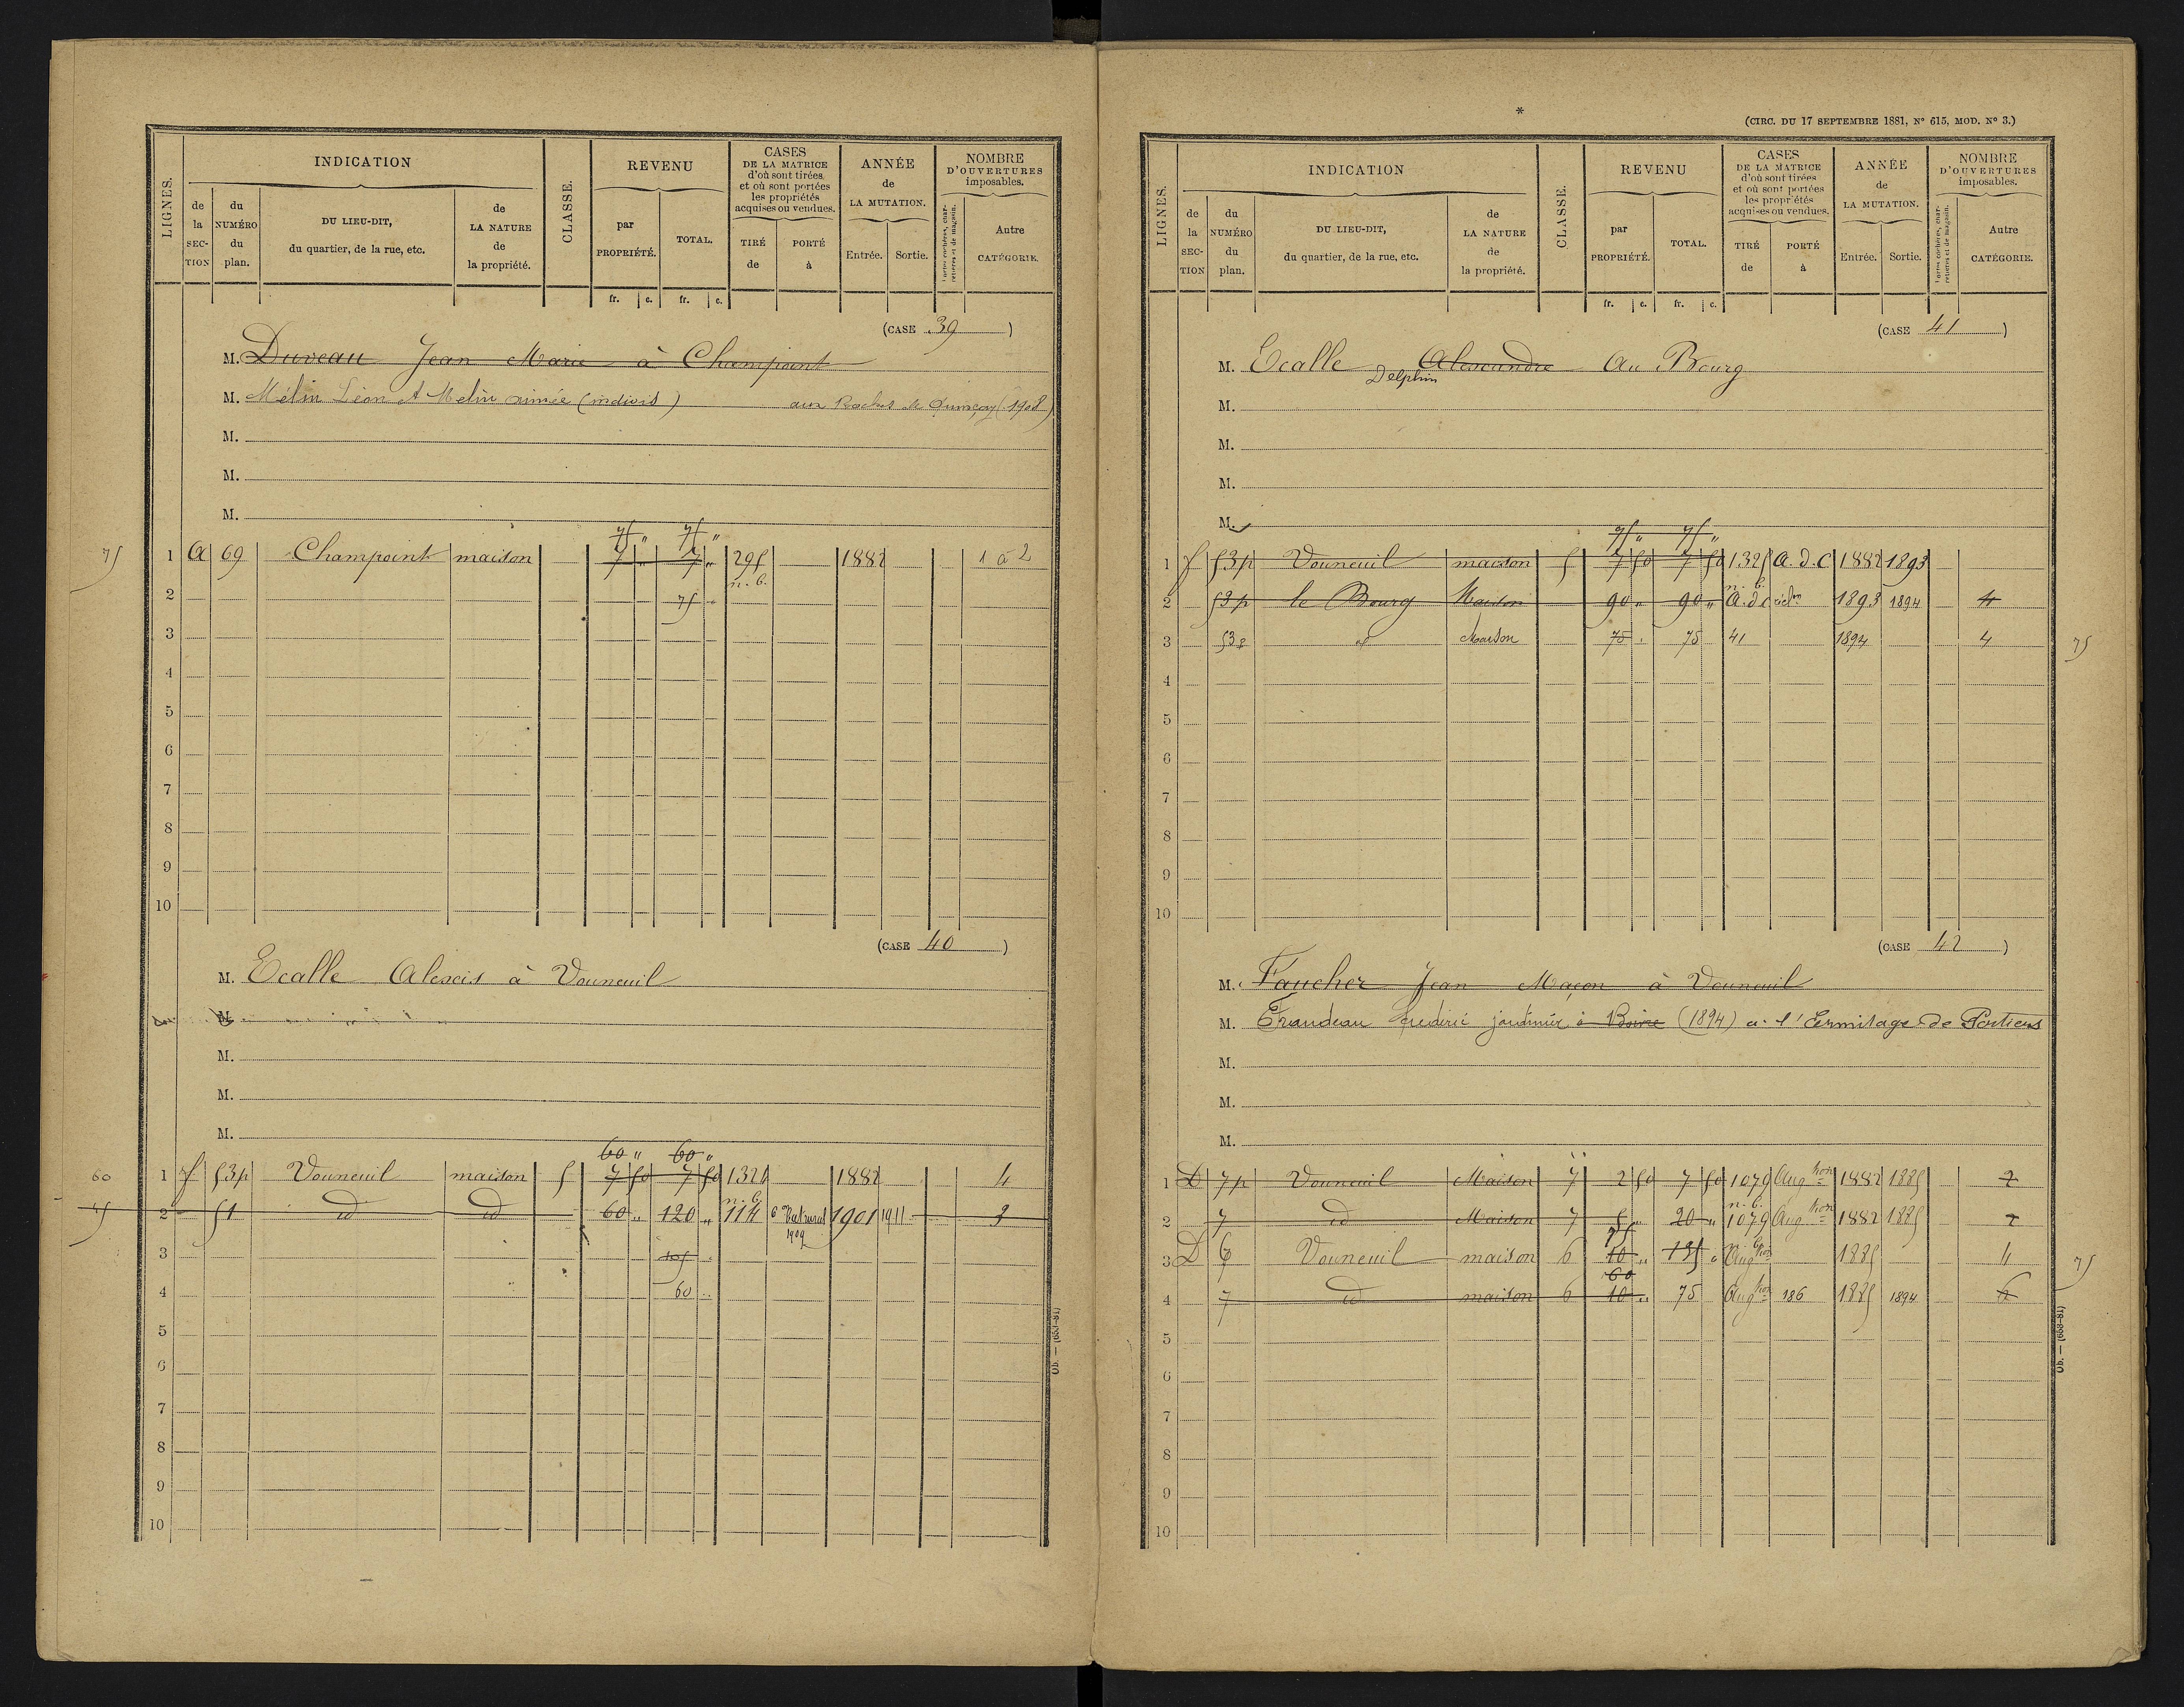 LIGNES.
INDICATION
de la SECTION
du NUMÉRO du plan.
DU LIEU-DIT, du quartier, de la rue, etc.
de LA NATURE de la propriété.
CLASSE.
REVENU
par PROPRIÉTÉ.
TOTAL.
fr. c. fr. c.
CASES DE LA MATRICE d'où sont tirées et où sont portées les propriétés acquises ou vendues.
TIRÉ de
PORTÉ à
ANNÉE de LA MUTATION.
Entrée. Sortie.
NOMBRE D'OUVERTURES imposables.
Portes cochères, charretières et de magasin.
Autre CATÉGORIE.
(CASE 39)
M. Duveau Jean Marie à Champoint
M. Mélin Léon et Melin aimée (indivis) aux Roches de Quinçay (1908)
M.
M.
M.
75 " 75 "
75 1 A 69 Champoint maison 7 " 7 " 295 1882 1 à 2
n.b.
2 75 "
3
4
5
6
7
8
9
10
(CASE 40)
M. Ecalle Alexis à Vouneuil
M.
M.
M.
M.
60 " 60 "
60 1 f 53p Vouneuil maison 5 7 50 7 50 1324 1882 4
n.b.
45 2 51 id id 60 " 120 " 114 1901 1911 3
1909
3 105 "
4 60 "
5
6
7
8
9
10
Ob. — (653-81)
*
(CIRC. DU 17 SEPTEMBRE 1881, Nº 615, MOD. Nº 3.)
LIGNES.
INDICATION
de la SECTION
du NUMÉRO du plan.
DU LIEU-DIT, du quartier, de la rue, etc.
de LA NATURE de la propriété.
CLASSE.
REVENU
par PROPRIÉTÉ.
TOTAL.
fr. c. fr. c.
CASES DE LA MATRICE d'où sont tirées et où sont portées les propriétés acquises ou vendues.
TIRÉ de
PORTÉ à
ANNÉE de LA MUTATION.
Entrée. Sortie.
NOMBRE D'OUVERTURES imposables.
Portes cochères, charretières et de magasin.
Autre CATÉGORIE.
(CASE 41)
M. Ecalle Alexandre Au Bourg
Delphin
M.
M.
M.
M.
75 " 75 "
1 f 53p Vouneuil maison 5 7 50 7 50 1325 a.d.c 1882 1893
n.b.
2 53p le Bourg Maison 90 " 90 " a.d.c 1893 1894 4
3 53p Maison 75 " 75 41 1894 4 75
4
5
6
7
8
9
10
(CASE 42)
M. Faucher Jean Maçon à Vouneuil
M. Fraudeau frederic jardinier à (1894) a l'Ermitage de Poitiers
M.
M.
M.
1 D 7p Vouneuil Maison 7 2 50 7 50 1079 Augtion 1882 1885 2
n.b.
2 7 id Maison 7 5 " 20 " 1079 Augtion 1882 1885 2
75
3 D 6 Vouneuil maison 6 10 " 135 " Augtion 1885 4 75
60
4 7 id maison 6 10 " 75 Augtion 186 1885 1894 6
5
6
7
8
9
10
Ob. — (653-81)